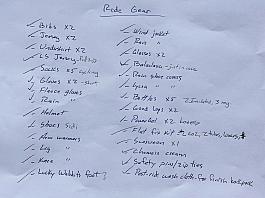 Ride Gear
Bibs x2
Jersey x2
Undershirt x2
LS Jersey
Socks x5
Gloves x2 - short
Fleece gloves
Rain "
Helmet
Shoes Sidi
Arm warmers
Leg "
Knee "
Lucky Wildcats
Wind jacket
Rain "
Glasses x2
Balaclava
Rain shoe covers
Lycra " "
Bottles x5 2 Insulated, 3 reg
Good Legs x2
Powerbar x2
Flat fix kit co2, 2 tubes, levers
Sunscreen x1
Chamois cream
Safety pins/zip ties
Post-ride wash cloth for finish backpack